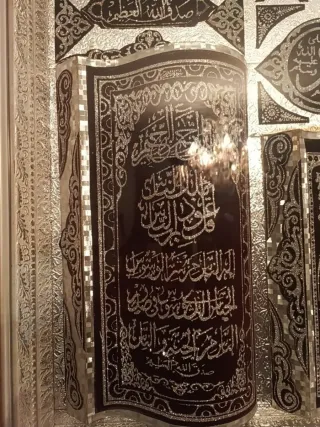 صدق الله العظيم
بسم الله الرحمن الرحيم
قل اعوذ برب الناس ملك الناس
اله الناس من شر الوسواس
الخناس الذي يوسوس في صدور
الناس من الجنة و الناس
صدق الله العظيم
الله
عليه